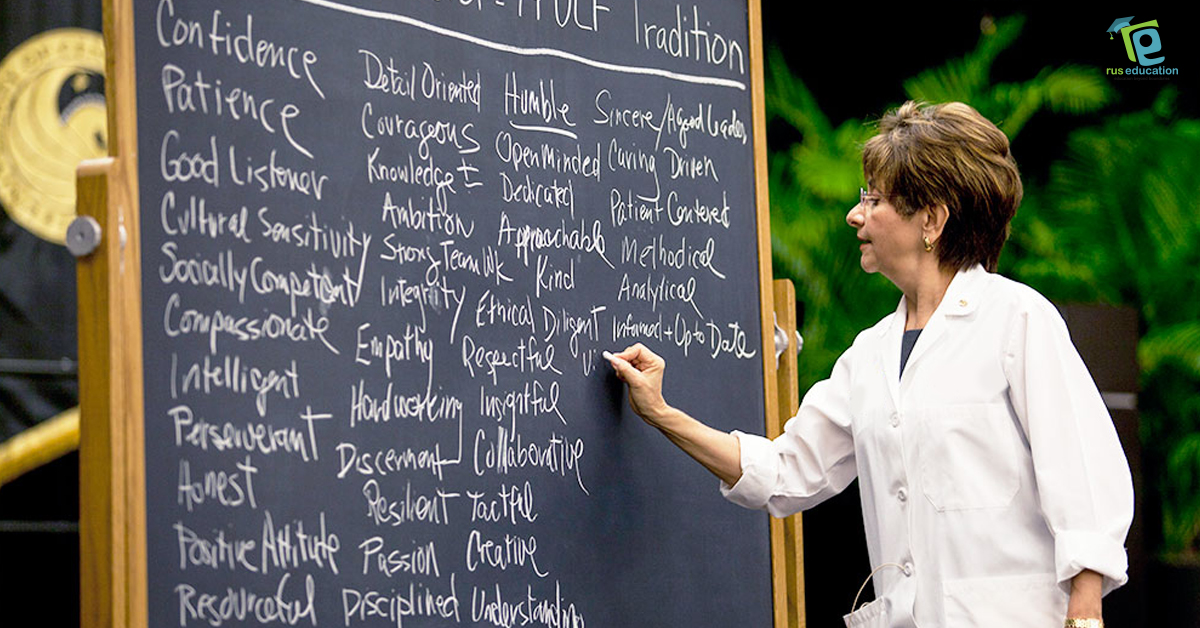 UCF Tradition
Confidence
Patience
Good Listener
Cultural Sensitivity
Socially Competent
Compassionate
Intelligent
Perserverant
Honest
Positive Attitude
Resourceful
Detail Oriented
Courageous
Knowledge
Ambition
Strong Team Wk
Integrity
Empathy
Hardworking
Discernment
Resilient
Passion
Disciplined
Humble
Open minded
Dedicated
Approachable
Kind
Ethical Diligent
Respectful
Insightful
Collaborative
Tactful
Creative
Understanding
Sincere/A good leader
Caring Driven
Patient Centered
Methodical
Analytical
Informed + Up to Date
rus education